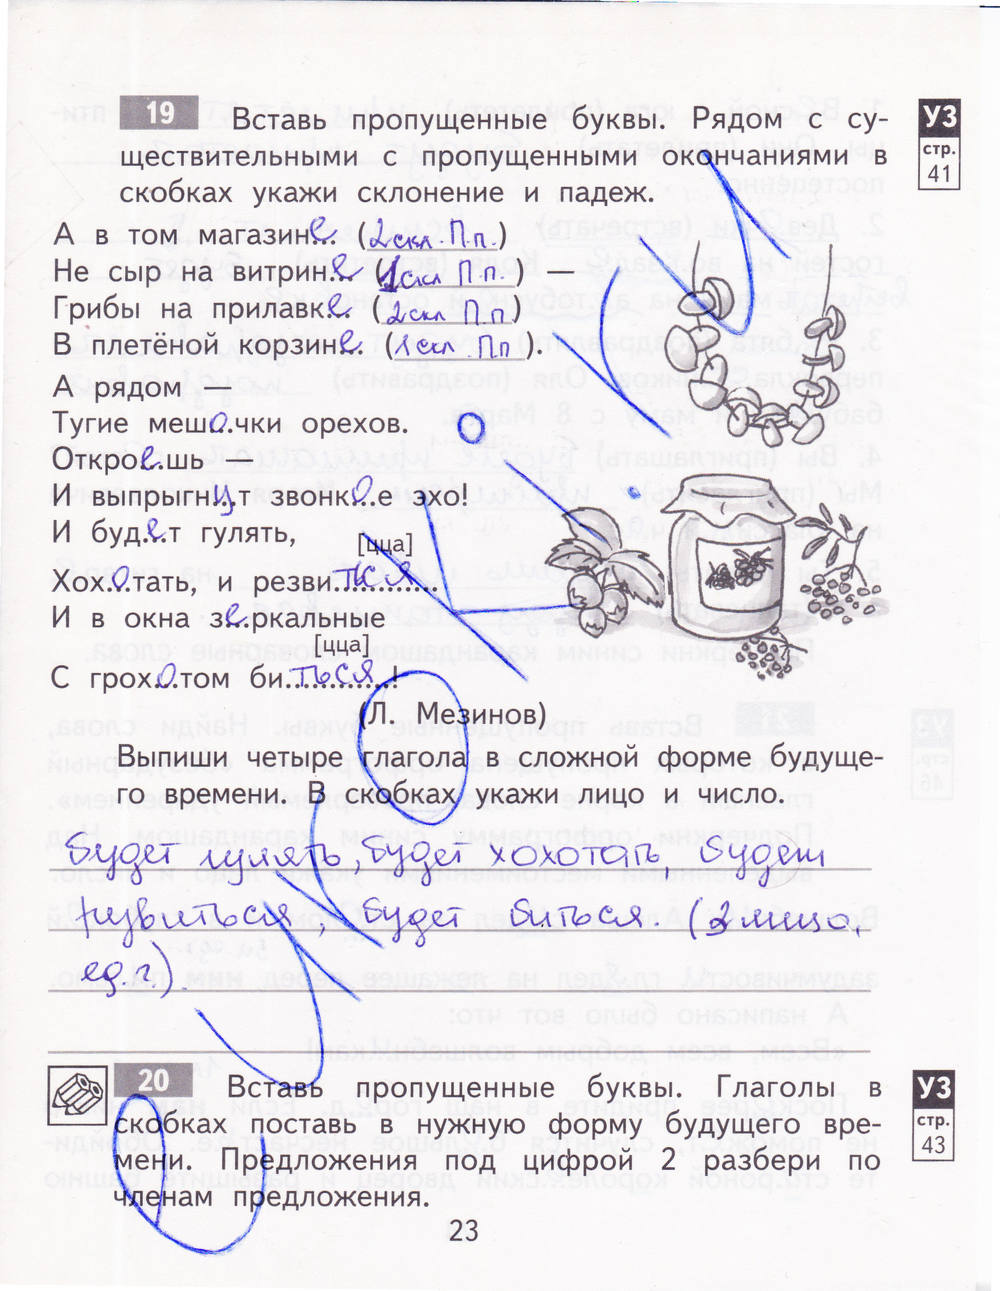 19 Вставь пропущенные буквы. Рядом с су-
ществительными с пропущенными окончаниями в
скобках укажи склонение и падеж.
УЗ
стр.
41
А в том магазине. (2скл. П.п.)
Не сыр на витрине (1скл П.п.) —
Грибы на прилавке (2скл П.п)
В плетёной корзине. (1скл П.п).
А рядом —
Тугие мешо.чки орехов.
Откро.е.шь —
И выпрыгн.у.т звонк.о.е эхо!
И буд.е.т гулять,
[цца]
Хох.о.тать, и резви.ТСЯ...
И в окна зе.ркальные
[цца]
С грох.о.том би.ться...!
(Л. Мезинов)
Выпиши четыре глагола в сложной форме будуще-
го времени. В скобках укажи лицо и число.
Будет гулять, будет хохотать, будет
резвиться, будет биться. (3 лицо,
ед.ч.).
20 Вставь пропущенные буквы. Глаголы в
скобках поставь в нужную форму будущего вре-
мени. Предложения под цифрой 2 разбери по
членам предложения.
УЗ
стр.
43
23